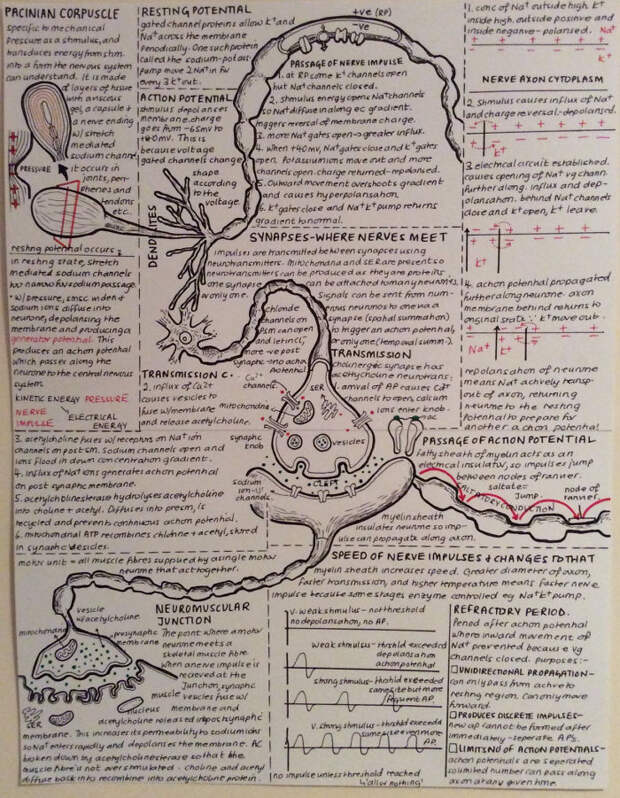 PACINIAN CORPUSCLE
specific to mechanical
pressure as a stimulus, and
transduces energy from stim.
into a form the nervous system
can understand. It is made
of layers of tissue
with a viscous
gel, a capsule +
a nerve ending
w/ stretch
mediated
sodium channels
it occurs in
joints,
tendons
etc.
PRESSURE
resting potential occurs:
in resting state, stretch
mediated sodium channels
too narrow for sodium passage.
w/ pressure, smsc widen &
sodium ions diffuse into
neurone, depolarising the
membrane and producing a
generator potential. This
produces an action potential
which passes along the
neurone to the central nervous
system.
KINETIC ENERGY PRESSURE
NERVE IMPULSE
ELECTRICAL ENERGY
RESTING POTENTIAL
gated channel proteins allow K+ and
Na+ across the membrane
periodically. One such protein
called the sodium-potass.
pump move 2Na+ in for
every 3K+ out.
ACTION POTENTIAL
stimulus depolarises
membrane. charge
goes from -65mv to
+40mv. This is
because voltage
gated channels change
shape
according
to the
voltage.
DENDRITES
+ve (RP)
-ve
PASSAGE OF NERVE IMPULSE
1. at RP some K+ channels open
but Na+ channels closed.
2. stimulus energy opens Na+ channels
so Na+ diffuse in along ec gradient.
triggers reversal of membrane charge.
3. more Na+ gates open -> greater influx.
4. When +40mv, Na+ gates close and K+ gates
open. Potassiums move out and more
channels open. charge returned - repolarised.
5. Outward movement overshoots gradient
and causes hyperpolarisation.
6. K+ gates close and Na+K+ pump returns
gradient to normal.
SYNAPSES-WHERE NERVES MEET
impulses are transmitted between synapses using
neurotransmitters. Mitochondria and SER are present so
neurotransmitters can be produced as they are proteins.
one synapse can be attached to many neurones,
or only one.
Signals can be sent from num-
erous neurones to one via a
synapse (spatial summation)
to trigger an action potential,
or only one (temporal summ-).
chloride
channels on
psm can open
and let in Cl-,
more -ve post
synaptic - no action
potential
TRANSMISSION
cholinergic synapse has
acetylcholine neurotrans:
1. arrival of AP causes Ca2+
channels to open, calcium
ions enter knob.
TRANSMISSION C.
2. influx of Ca2+
causes vesicles to
fuse w/ membrane
and release acetylcholine.
Ca2+
channels
mitochondria
SER
vesicles
synaptic
knob
ac
CLEFT
sodium
ion
channels
3. acetylcholine fuses w/ receptors on Na+ ion
channels on post sm. Sodium channels open and
ions flood in down concentration gradient.
4. influx of Na+ ions generates action potential
on post synaptic membrane.
5. acetylcholinesterase hydrolyses acetylcholine
into choline + acetyl. Diffuses into presm, is
recycled and prevents continuous action potential.
6. mitochondrial ATP recombines choline + acetyl, stored
in synaptic vesicles.
1. conc of Na+ outside high. K+
inside high. outside positive and
inside negative - polarised.
Na+
K+
NERVE AXON CYTOPLASM
2. stimulus causes influx of Na+
and charge reversal - depolarised.
3. electrical circuit established.
causes opening of Na+ vg chann.
further along. influx and dep-
olarisation. behind Na+ channels
close and K+ open, K+ leave.
K+
4. action potential propagated
further along neurone. axon
membrane behind returns to
original state. K+ move out.
Na+
K+
repolarisation of neurone
means Na+ actively transp-
out of axon, returning
neurone to the resting
potential to prepare for
another action potential
PASSAGE OF ACTION POTENTIAL
fatty sheath of myelin acts as an
electrical insulator, so impulses jump
between nodes of ranvier.
saltate:
jump.
node of
ranvier
SALTATORY CONDUCTION
myelin sheath
insulates neurone so imp-
ulse can propagate along axon.
motor unit = all muscle fibres supplied by a single motor
neurone that act together.
SPEED OF NERVE IMPULSES & CHANGES TO THAT
myelin sheath increases speed. Greater diameter of axon,
faster transmission, and higher temperature means faster nerve
impulse because some stages enzyme controlled eg Na+K+ pump.
NEUROMUSCULAR
JUNCTION
The point where a motor
neurone meets a
skeletal muscle fibre.
When a nerve impulse is
received at the
junction, synaptic
vesicles fuse w/
membrane and
acetylcholine released into postsynaptic
membrane. This increases its permeability to sodium ions
so Na+ enters rapidly and depolarises the membrane. AC
broken down by acetylcholinesterase so that the
muscle fibre is not over stimulated - choline and acetyl
diffuse back into recombine into acetylcholine protein.
vesicle
w/ acetylcholine
mitochondria
presynaptic
membrane
muscle
nucleus
SER
v. weak stimulus - no threshold
no depolarisation, no AP.
weak stimulus - thrshld exceeded
depolarisation
action potential
strong stimulus - thrshld exceeded
same size but more
frequent AP
v. strong stimulus - thrshld exceeded
same size even more
AP.
no impulse unless threshold reached
'all or nothing'
REFRACTORY PERIOD.
Period after action potential
where inward movement of
Na+ prevented because vg
channels closed. purposes:-
UNIDIRECTIONAL PROPAGATION-
can only pass from active to
resting region. Can only move
forward.
PRODUCES DISCRETE IMPULSES-
new ap cannot be formed after
immediately - seperate APs.
LIMITING OF ACTION POTENTIALS-
action potentials are seperated
so limited number can pass along
axon at any given time.